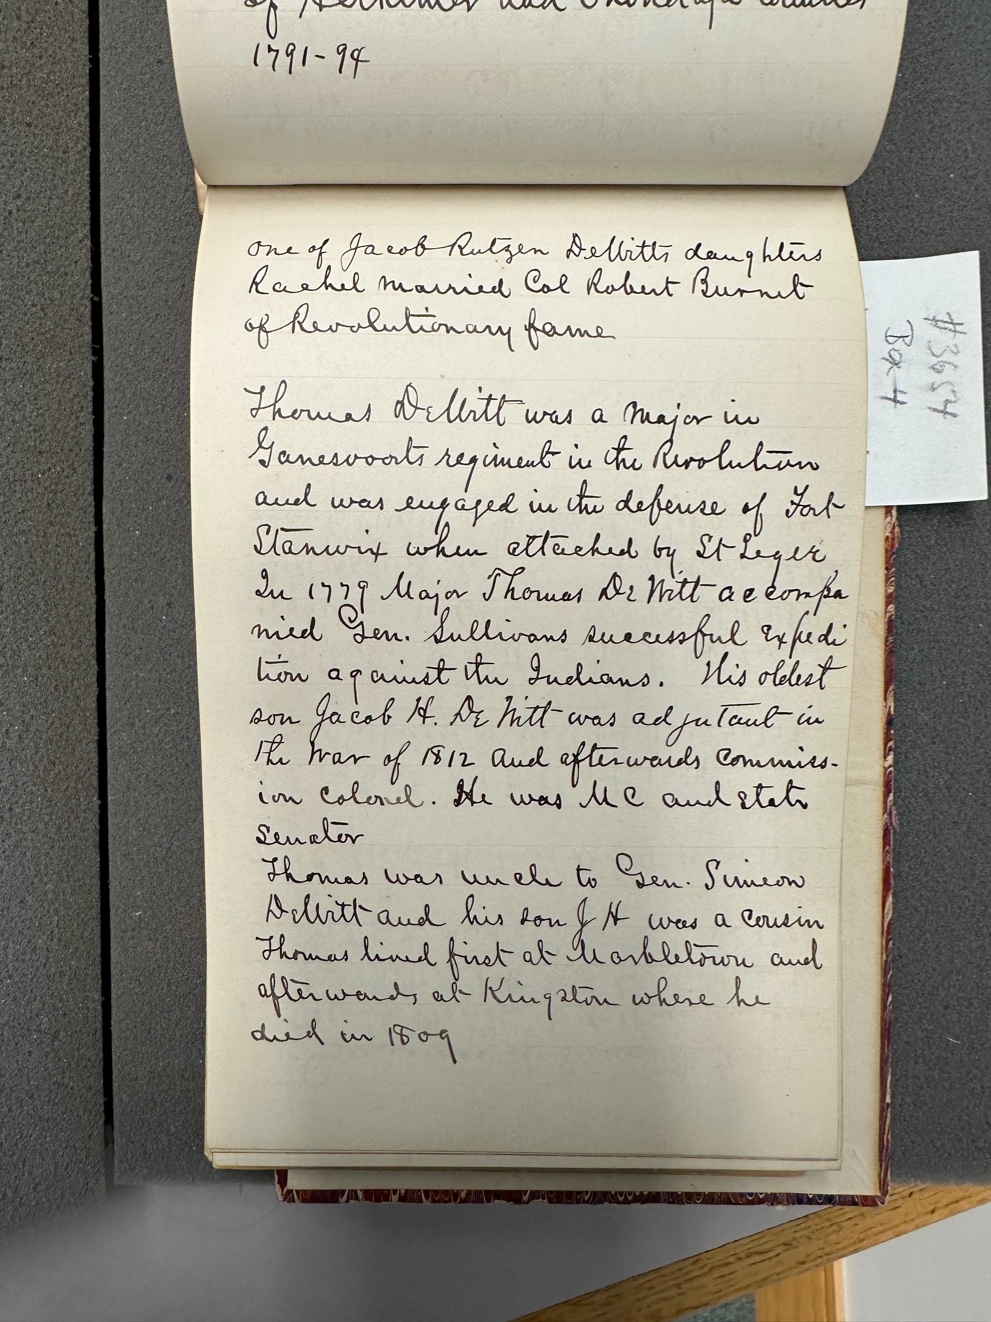 of Herkimer and Onondaga counties
1791-94
one of Jacob Rutzen DeWitts daughters
Rachel married Col Robert Burnet
of Revolutionary fame
Thomas DeWitt was a Major in
Ganesvoorts regiment in the Revolution
and was engaged in the defense of Fort
Stanwix when attacked by St Leger
In 1779 Major Thomas DeWitt accompa
nied Gen. Sullivans successful Expedi
tion against the Indians. His oldest
son Jacob H. DeWitt was adjutant in
the War of 1812 and afterwards commiss-
ion colonel. He was M C and state
senator
Thomas was uncle to Gen. Simeon
DeWitt and his son J H was a cousin
Thomas lived first at Marbletown and
afterwards at Kingston where he
died in 1809
#3654
Box 4